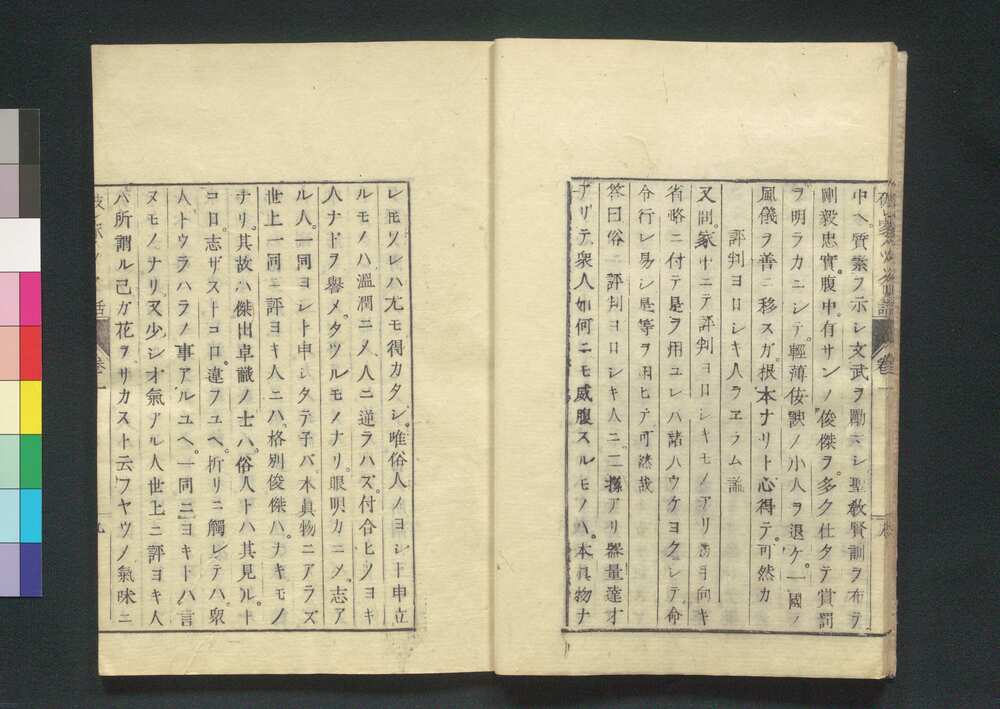 中ヘ質素ヲ示シ文武ヲ勵マシ聖敎賢訓ヲ布テ
剛毅忠實。腹中。有サンノ俊傑ヲ。多ク仕タテ賞罰
ヲ明ラカニシテ。輕薄佞諛ノ小人ヲ退ケ。一國ノ
風儀ヲ善ニ移スガ。根本ナリト心得テ。可然カ
評判ヨロシキ人ヲヱラム論
又問。家中ニテ評判ヨロシキモノアリ勝手向キ
省略ニ付テ是ヲ用ユレハ諸人ウケヨクシテ命
令行レ易シ是等ヲ用ヒテ可然哉
答曰俗ニ評判ヨロシキ人ニ。二樣アリ器量達才
アリテ衆人如何ニモ威腹スルモノハ。本眞物ナ
卷一
レモソレハ尤モ得カタシ。唯俗人ノヨシト申立
ルモノハ溫潤ニメ。人ニ逆ラハズ。付合ヒノヨキ
人ナドヲ譽メ。タツルモノナリ。眼明カニメ。志ア
ル人。一同ヨシト申シタテ子バ。本眞物ニアラズ
世上一同ニ評ヨキ人ニハ。格別俊傑ハ。ナキモノ
ナリ。其故ハ傑出卓識ノ士ハ。俗人トハ其見ルト
コロ。志ザストコロ。違フユヘ。折リニ觸レテハ。衆
人トウラハラノ事アルユヘ。一同ニヨキトハ言
ヌモノナリ又少シオ氣アル人世上ニ評ヨキ人
ハ所謂ル己ガ花ヲサカスト云フヤツノ氣味ニ
卷一
九